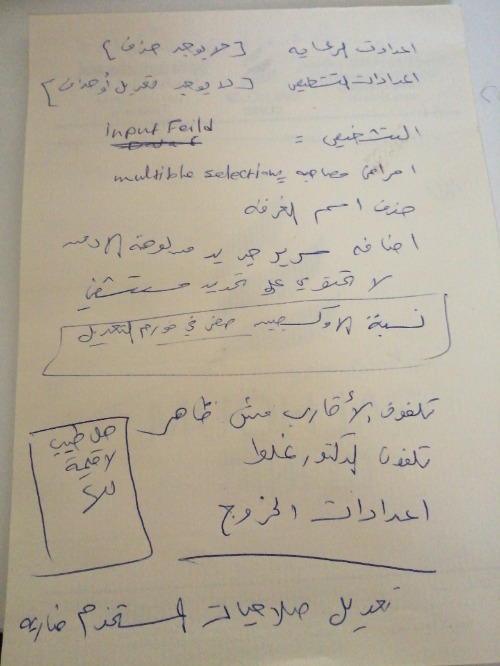 اعدادات الرعايه [لا يوجد حذف]
اعدادات التشخيص [لا يوجد تعديل أو حذف]
التشخيص = input Feild
امراض مصاحبه = multible selection
حذف اسم الغرفه
اضافه سرير جديد من لوحة الادمن
لا تحتوي على تحديد مستشفى
نسبة الاوكسجين صفر في فورم التعديل
تلفون الأقارب مش ظاهر
تلفون الدكتور غلط
اعدادات الخروج
طبيب
لا قيمة
تعديل صلاحيات المستخدم